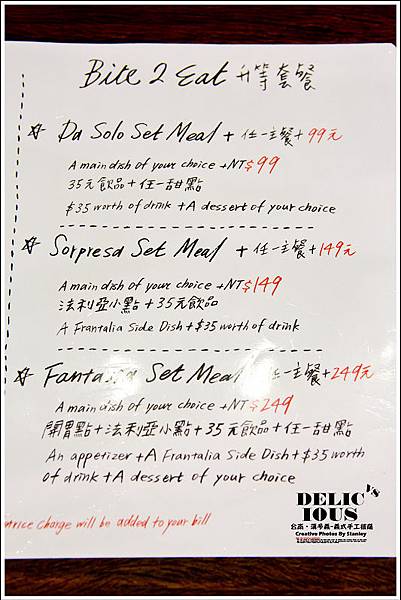 Bite 2 Eat 升等套餐
Da Solo Set Meal + 任一主餐+99元
A main dish of your choice +NT$99
35元飲品+任一甜點
$35 worth of drink +A dessert of your choice
Sorpresa Set Meal + 任一主餐+149元
A main dish of your choice +NT$149
法利亞小點+35元飲品
A Frantalia Side Dish+$35 worth of drink
Fantasia Set Meal 任一主餐+249元
A main dish of your choice +NT$249
開胃點+法利亞小點+35元飲品+任一甜點
An appetizer +A Frantalia Side Dish+$35 worth
of drink +A dessert of your choice
charge will be added to your bill
DELIC
IOUS
Y'S
Creative Photos By Stanley